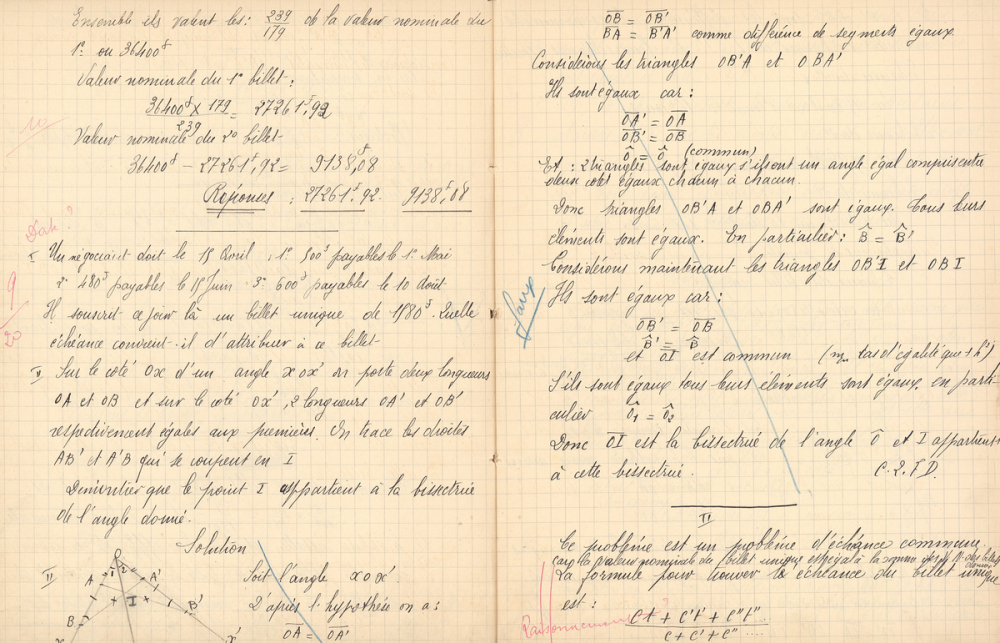 Ensemble ils valent les : 239/179 de la valeur nominale du
1er ou 36400f
Valeur nominale du 1er billet :
36400f × 179 / 239 = 27261f,92
10
Valeur nominale du 2e billet
36400f - 27261f,92 = 9138f,08
Réponses : 27261f.92. 9138f,08
Date ?
I Un négociant doit le 15 Avril , 1° 500f payables le 1er Mai
2° 480f payables le 15 Juin 3° 600f payables le 10 Août
9/20
Il souscrit ce jour là un billet unique de 1580f. Quelle
échéance convient-il d'attribuer à ce billet
II Sur le coté Ox d'un angle xox' on porte deux longueurs
OA et OB et sur le coté Ox', 2 longueurs OA' et OB'
respectivement égales aux premières. On trace les droites
AB' et A'B qui se coupent en I
Démontrer que le point I appartient à la bissectrice
de l'angle donné.
Solution
II Soit l'angle xox'.
D'après l'hypothèse on a :
OA = OA'
O
1 2
A A'
I
B B'
x x'
OB = OB'
BA = B'A' comme différence de segments égaux
Considérons les triangles OB'A et OBA'
Ils sont égaux car :
OA' = OA
OB' = OB
Ô = Ô (commun)
Et : 2 triangles sont égaux s'ils ont un angle égal compris entre
deux cotés égaux chacun à chacun.
Donc triangles OB'A et OBA' sont égaux. Tous leurs
éléments sont égaux. En particulier : B̂ = B̂'
Considérons maintenant les triangles OB'I et OBI
Faux
Ils sont égaux car :
OB' = OB
B̂' = B̂
et OI est commun (m cas d'égalité que + ht)
S'ils sont égaux tous leurs éléments sont égaux, en parti-
culier Ô1 = Ô2
Donc OI est la bissectrice de l'angle Ô et I appartient
à cette bissectrice. C.Q.F.D.
II
Ce problème est un problème d'échéance commune
car la valeur nominale du billet unique est égale à la somme des
La formule pour trouver la échéance du billet unique
est :
Raisonnement ?
Ct + C't' + C"t" ....
C + C' + C" ....